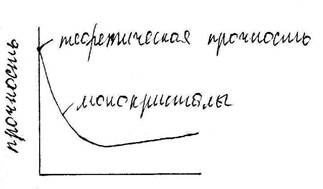 теоретическая прочность
монокристалы
прочность